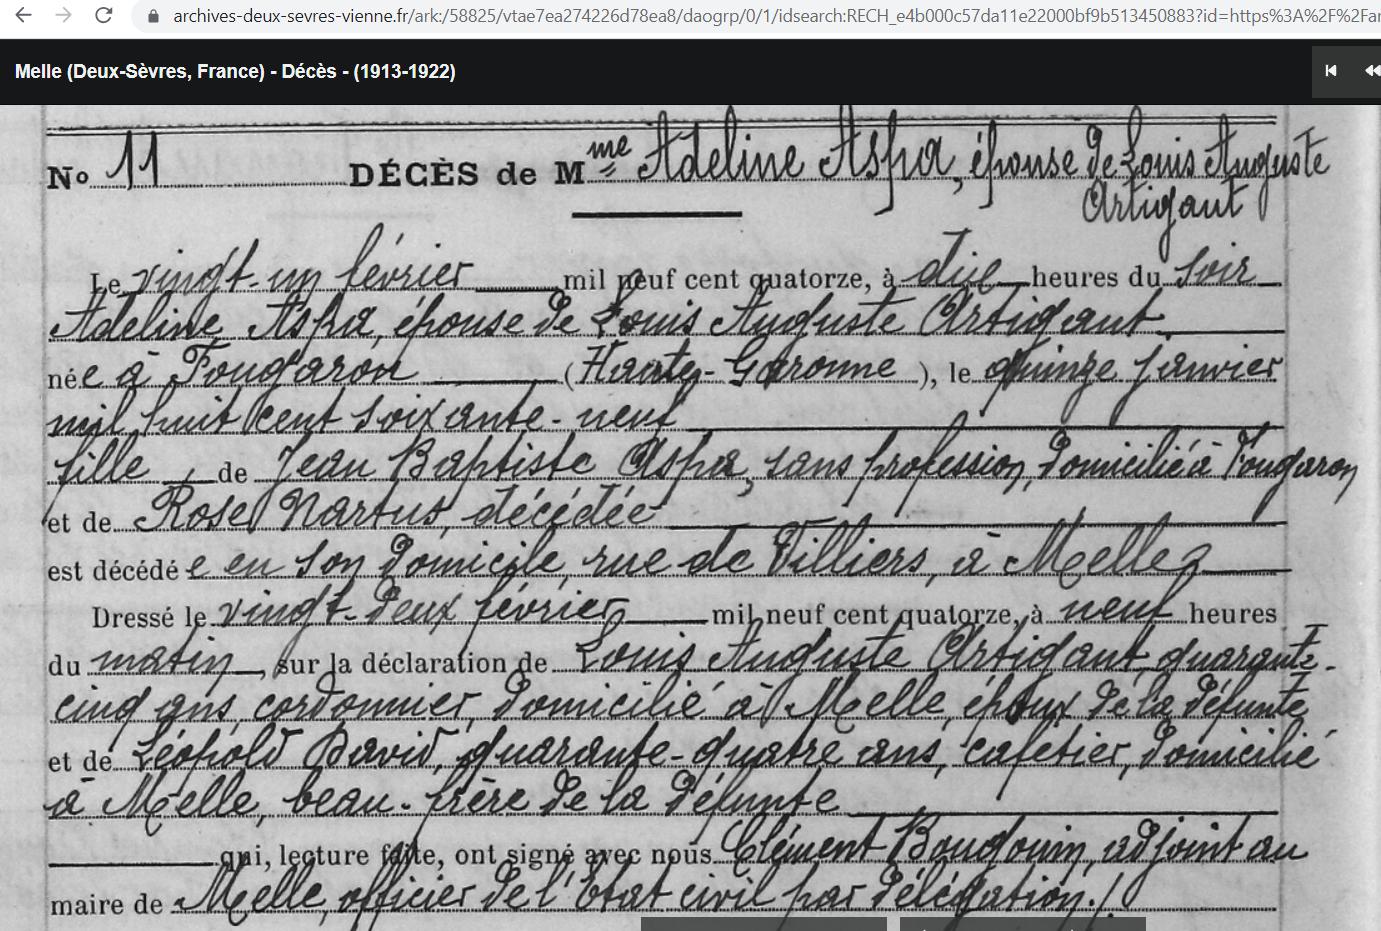 archives-deux-sevres-vienne.fr/ark:/58825/vtae7ea274226d78ea8/daogrp/0/1/idsearch:RECH_e4b000c57da11e22000bf9b513450883?id=https%3A%2F%2Far
Melle (Deux-Sèvres, France) - Décès - (1913-1922)
No 11 DÉCÈS de Mme Adeline Aspa, épouse de Louis Auguste
Artigaut
Le vingt-un février mil neuf cent quatorze, à dix heures du soir
Adeline Aspa, épouse de Louis Auguste Artigaut
née à Fougaron (Haute-Garonne), le quinze janvier
mil huit cent soixante-neuf
fille de Jean Baptiste Aspa, sans profession, domicilié à Fougaron
et de Rose Nartus, décédée
est décédée en son domicile, rue de Villiers, à Melle
Dressé le vingt-deux février mil neuf cent quatorze, à neuf heures
du matin, sur la déclaration de Louis Auguste Artigaut, quarante-
cinq ans, cordonnier, domicilié à Melle, époux de la défunte
et de Léopold David, quarante-quatre ans, cafetier, domicilié
à Melle, beau-frère de la défunte
qui, lecture faite, ont signé avec nous Clément Baudouin, adjoint au
maire de Melle, officier de l'État civil par délégation./